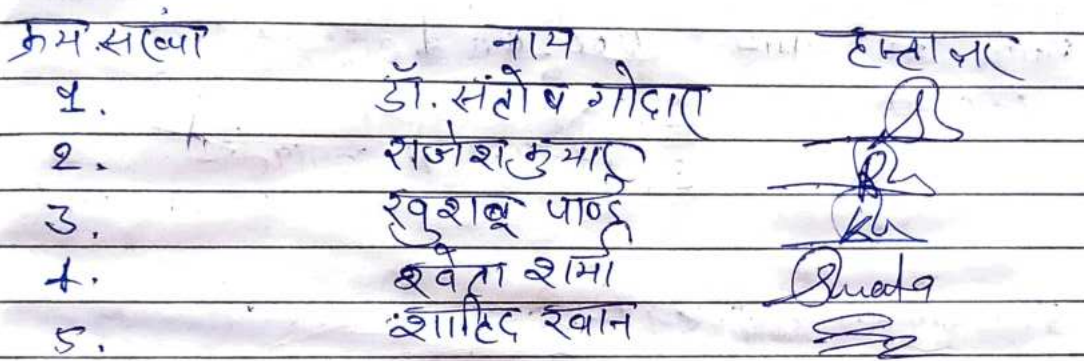 क्रम संख्या नाम हस्ताक्षर
1. डॉ. संतोष गोदारा
2. राजेश कुमार
3. खुशबू पाण्डे
4. श्वेता शर्मा Shweta
5. शाहिद खान